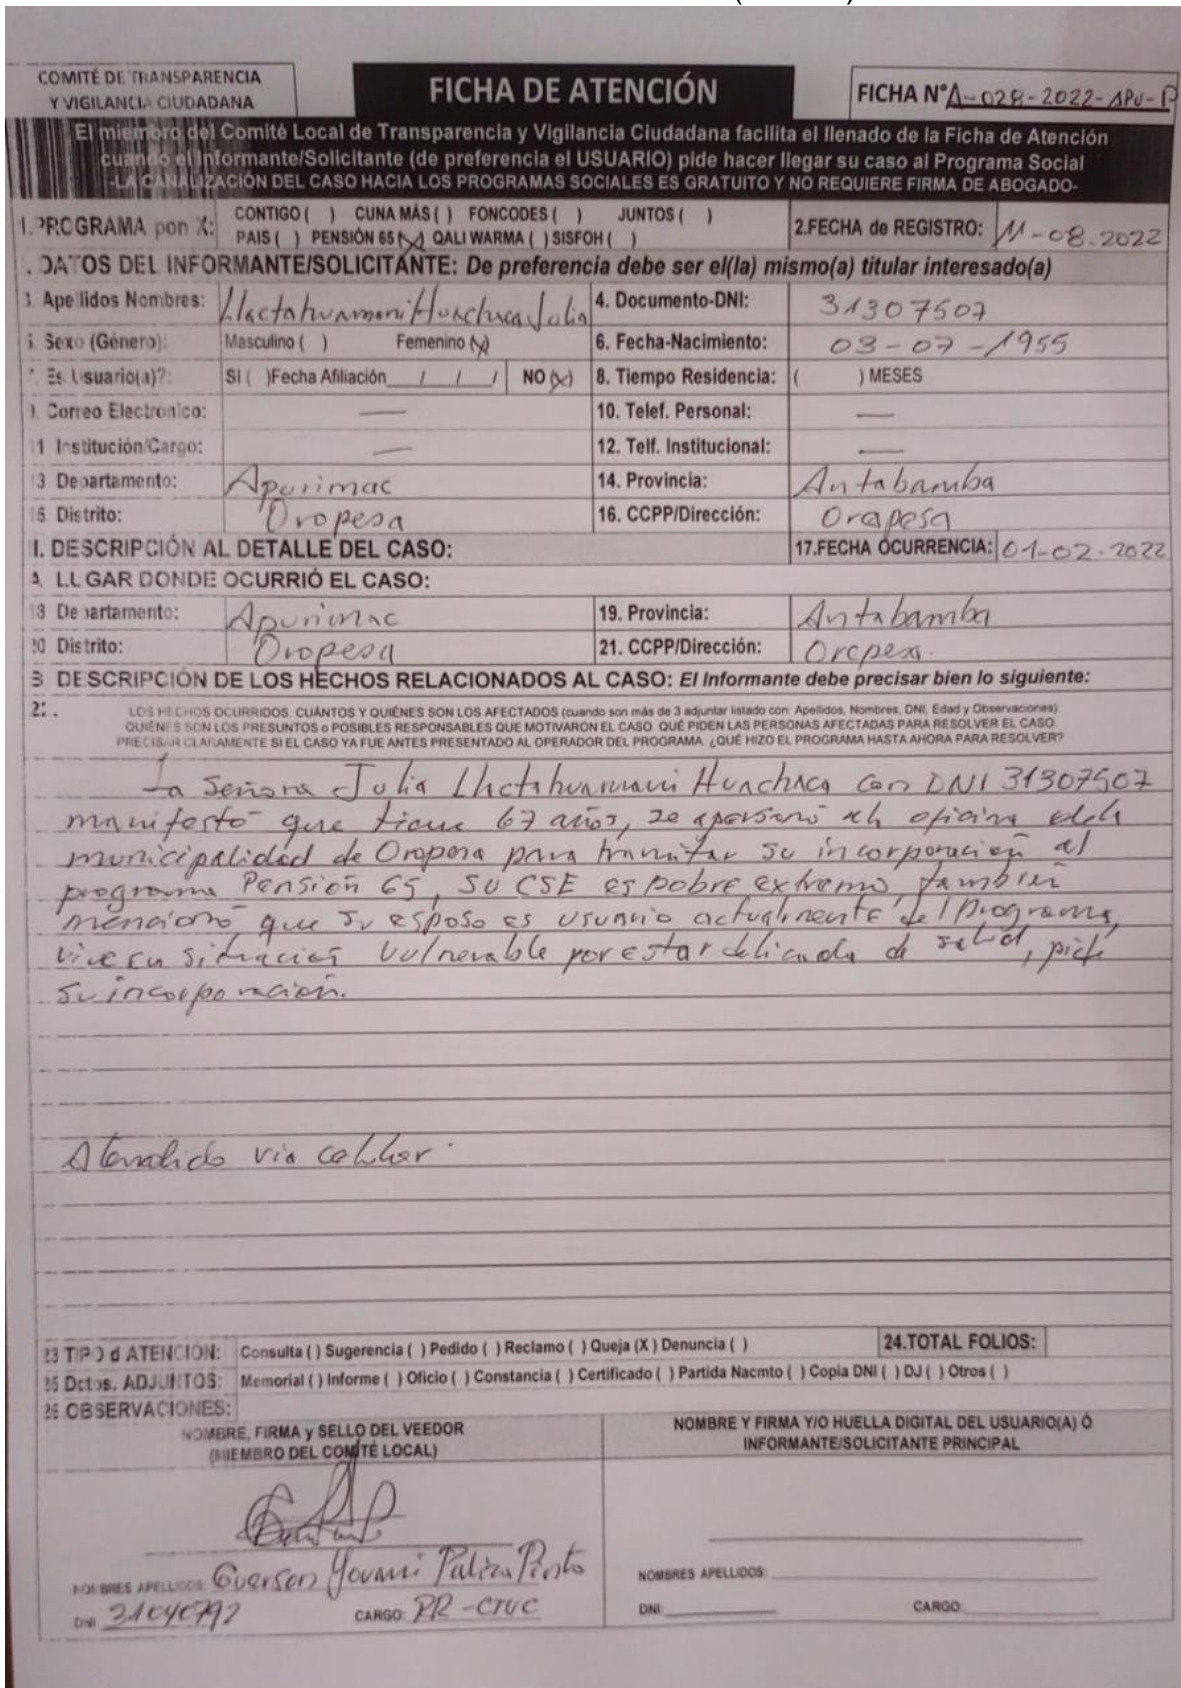 COMITÉ DE TRANSPARENCIA
Y VIGILANCIA CIUDADANA
FICHA DE ATENCIÓN
FICHA N° A-028-2022-APU-P
El miembro del Comité Local de Transparencia y Vigilancia Ciudadana facilita el llenado de la Ficha de Atención
cuando el Informante/Solicitante (de preferencia el USUARIO) pide hacer llegar su caso al Programa Social
-LA CANALIZACIÓN DEL CASO HACIA LOS PROGRAMAS SOCIALES ES GRATUITO Y NO REQUIERE FIRMA DE ABOGADO-
1.PROGRAMA pon X: CONTIGO ( ) CUNA MÁS ( ) FONCODES ( ) JUNTOS ( )
PAIS ( ) PENSIÓN 65 (X) QALI WARMA ( ) SISFOH ( )
2.FECHA de REGISTRO: 11-08-2022
. DATOS DEL INFORMANTE/SOLICITANTE: De preferencia debe ser el(la) mismo(a) titular interesado(a)
3. Apellidos Nombres: Llactahuamani Huachaca Julia 4. Documento-DNI: 31307507
5. Sexo (Género): Masculino ( ) Femenino (X) 6. Fecha-Nacimiento: 03-07-1955
7. Es Usuario(a)?: SI ( )Fecha Afiliación / / / NO (X) 8. Tiempo Residencia: ( ) MESES
9. Correo Electronico: — 10. Telef. Personal: —
11 Institución/Cargo: — 12. Telf. Institucional: —
13 Departamento: Apurimac 14. Provincia: Antabamba
15. Distrito: Oropesa 16. CCPP/Dirección: Oropesa
II. DESCRIPCIÓN AL DETALLE DEL CASO: 17.FECHA OCURRENCIA: 01-02-2022
A. LUGAR DONDE OCURRIÓ EL CASO:
18 Departamento: Apurimac 19. Provincia: Antabamba
20 Distrito: Oropesa 21. CCPP/Dirección: Oropesa.
B DESCRIPCIÓN DE LOS HECHOS RELACIONADOS AL CASO: El Informante debe precisar bien lo siguiente:
22. LOS HECHOS OCURRIDOS. CUÁNTOS Y QUIÉNES SON LOS AFECTADOS (cuando son más de 3 adjuntar listado con: Apellidos, Nombres, DNI, Edad y Observaciones)
QUIÉNES SON LOS PRESUNTOS o POSIBLES RESPONSABLES QUE MOTIVARON EL CASO. QUÉ PIDEN LAS PERSONAS AFECTADAS PARA RESOLVER EL CASO.
PRECISAR CLARAMENTE SI EL CASO YA FUE ANTES PRESENTADO AL OPERADOR DEL PROGRAMA. ¿QUÉ HIZO EL PROGRAMA HASTA AHORA PARA RESOLVER?
La Señora Julia Llactahuamani Huachaca con DNI 31307507
manifestó que tiene 67 años, se apersonó a la oficina de la
municipalidad de Oropesa para tramitar su incorporación al
programa Pensión 65, SU CSE es pobre extremo, también
mencionó que su esposo es usuario actualmente del programa,
vive en situación vulnerable por estar delicada de salud, pide
su incorporación.
Atendido via celular.
23 TIPO d ATENCIÓN: Consulta ( ) Sugerencia ( ) Pedido ( ) Reclamo ( ) Queja (X ) Denuncia ( ) 24.TOTAL FOLIOS:
25 Dctos. ADJUNTOS: Memorial ( ) Informe ( ) Oficio ( ) Constancia ( ) Certificado ( ) Partida Nacmto ( ) Copia DNI ( ) DJ ( ) Otros ( )
26 OBSERVACIONES:
NOMBRE, FIRMA y SELLO DEL VEEDOR
(MIEMBRO DEL COMITÉ LOCAL)
NOMBRE Y FIRMA Y/O HUELLA DIGITAL DEL USUARIO(A) Ó
INFORMANTE/SOLICITANTE PRINCIPAL
NOMBRES APELLIDOS: Guerson Yovani Paliza Pinto
DNI 31040792 CARGO: PR-CTVC
NOMBRES APELLIDOS:
DNI: CARGO: